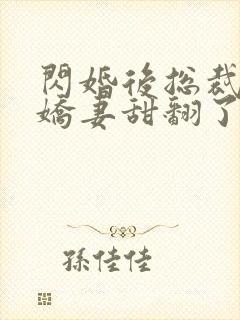 閃婚後总裁
嬌妻甜翻了
孫佳佳